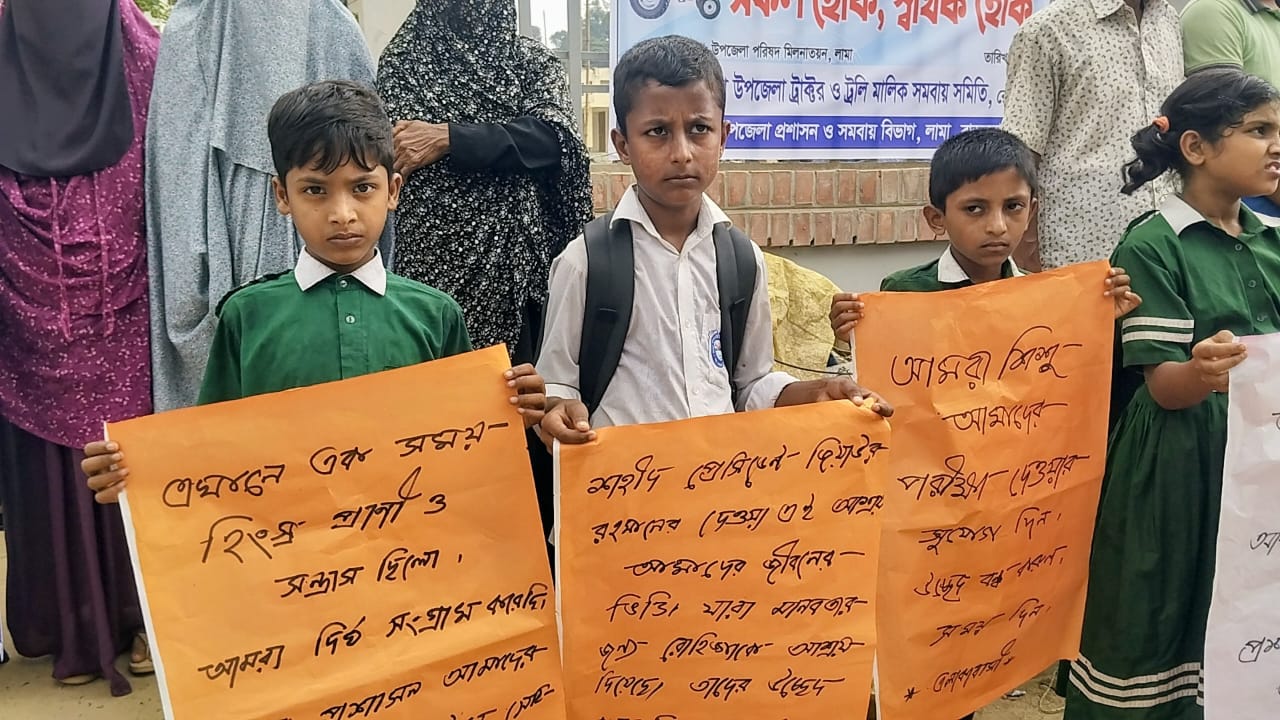 সফল হোক, স্বার্থক হোক
উপজেলা পরিষদ মিলনায়তন, লামা
তারিখ
উপজেলা ট্রাক্টর ও ট্রলি মালিক সমবায় সমিতি,
উপজেলা প্রশাসন ও সমবায় বিভাগ, লামা,
এখানে এক সময়
হিংস্র প্রাণী ও
সন্ত্রাস ছিলো।
আমরা দির্ঘ সংগ্রাম করেছি,
প্রশাসন আমাদের
শহীদ প্রেসিডেন্ট জিয়াউর
রহমানের দেওয়া এই আশ্রয়
আমাদের জীবনের
ভিত্তি। যারা মানবতার
জন্য রোহিঙ্গাকে আশ্রয়
দিয়েছে। তাদের উচ্ছেদ
আমরা শিশু
আমাদের
পরীক্ষা দেওয়ার
সুযোগ দিন।
উচ্ছেদ বন্ধ করুন,
সময় দিন।
* এলাকাবাসী *